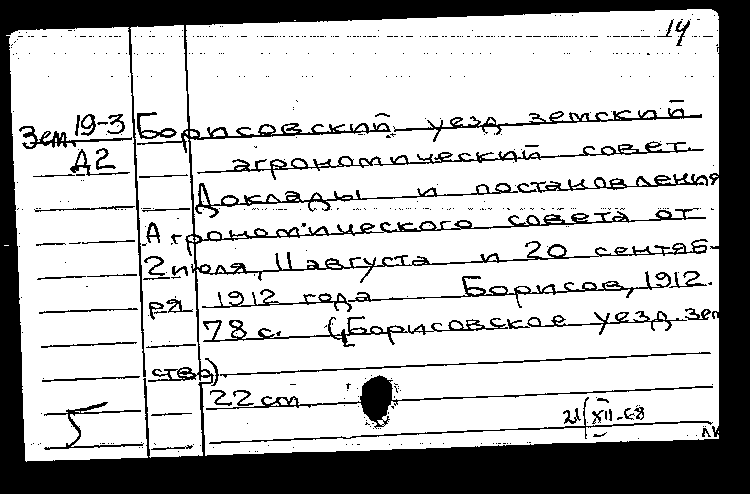 14
Зем. 19-3 Борисовский уезд. земский
Д2 агрономический совет.
Доклады и постановления
Агрономического совета от
2 июля, 11 августа и 20 сентяб-
ря 1912 года Борисов, 1912.
78 с. (Борисовское уезд. зем
ство).
22 cm.
5 21/XII-68